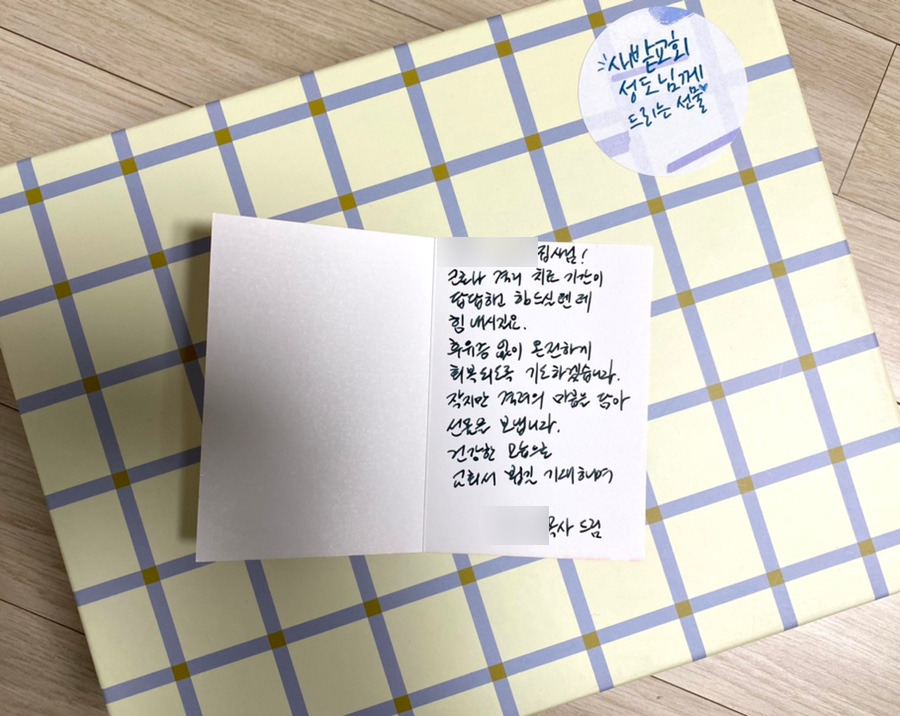 새밭교회
성도님께
드리는 선물
집사님!
코로나 격리 치료 기간이
답답하고 힘드실텐데
힘내시지요.
후유증 없이 온전하게
회복되도록 기도하겠습니다.
작지만 격려의 마음을 담아
선물을 보냅니다.
건강한 모습으로
교회서 뵙길 기대하며
목사 드림